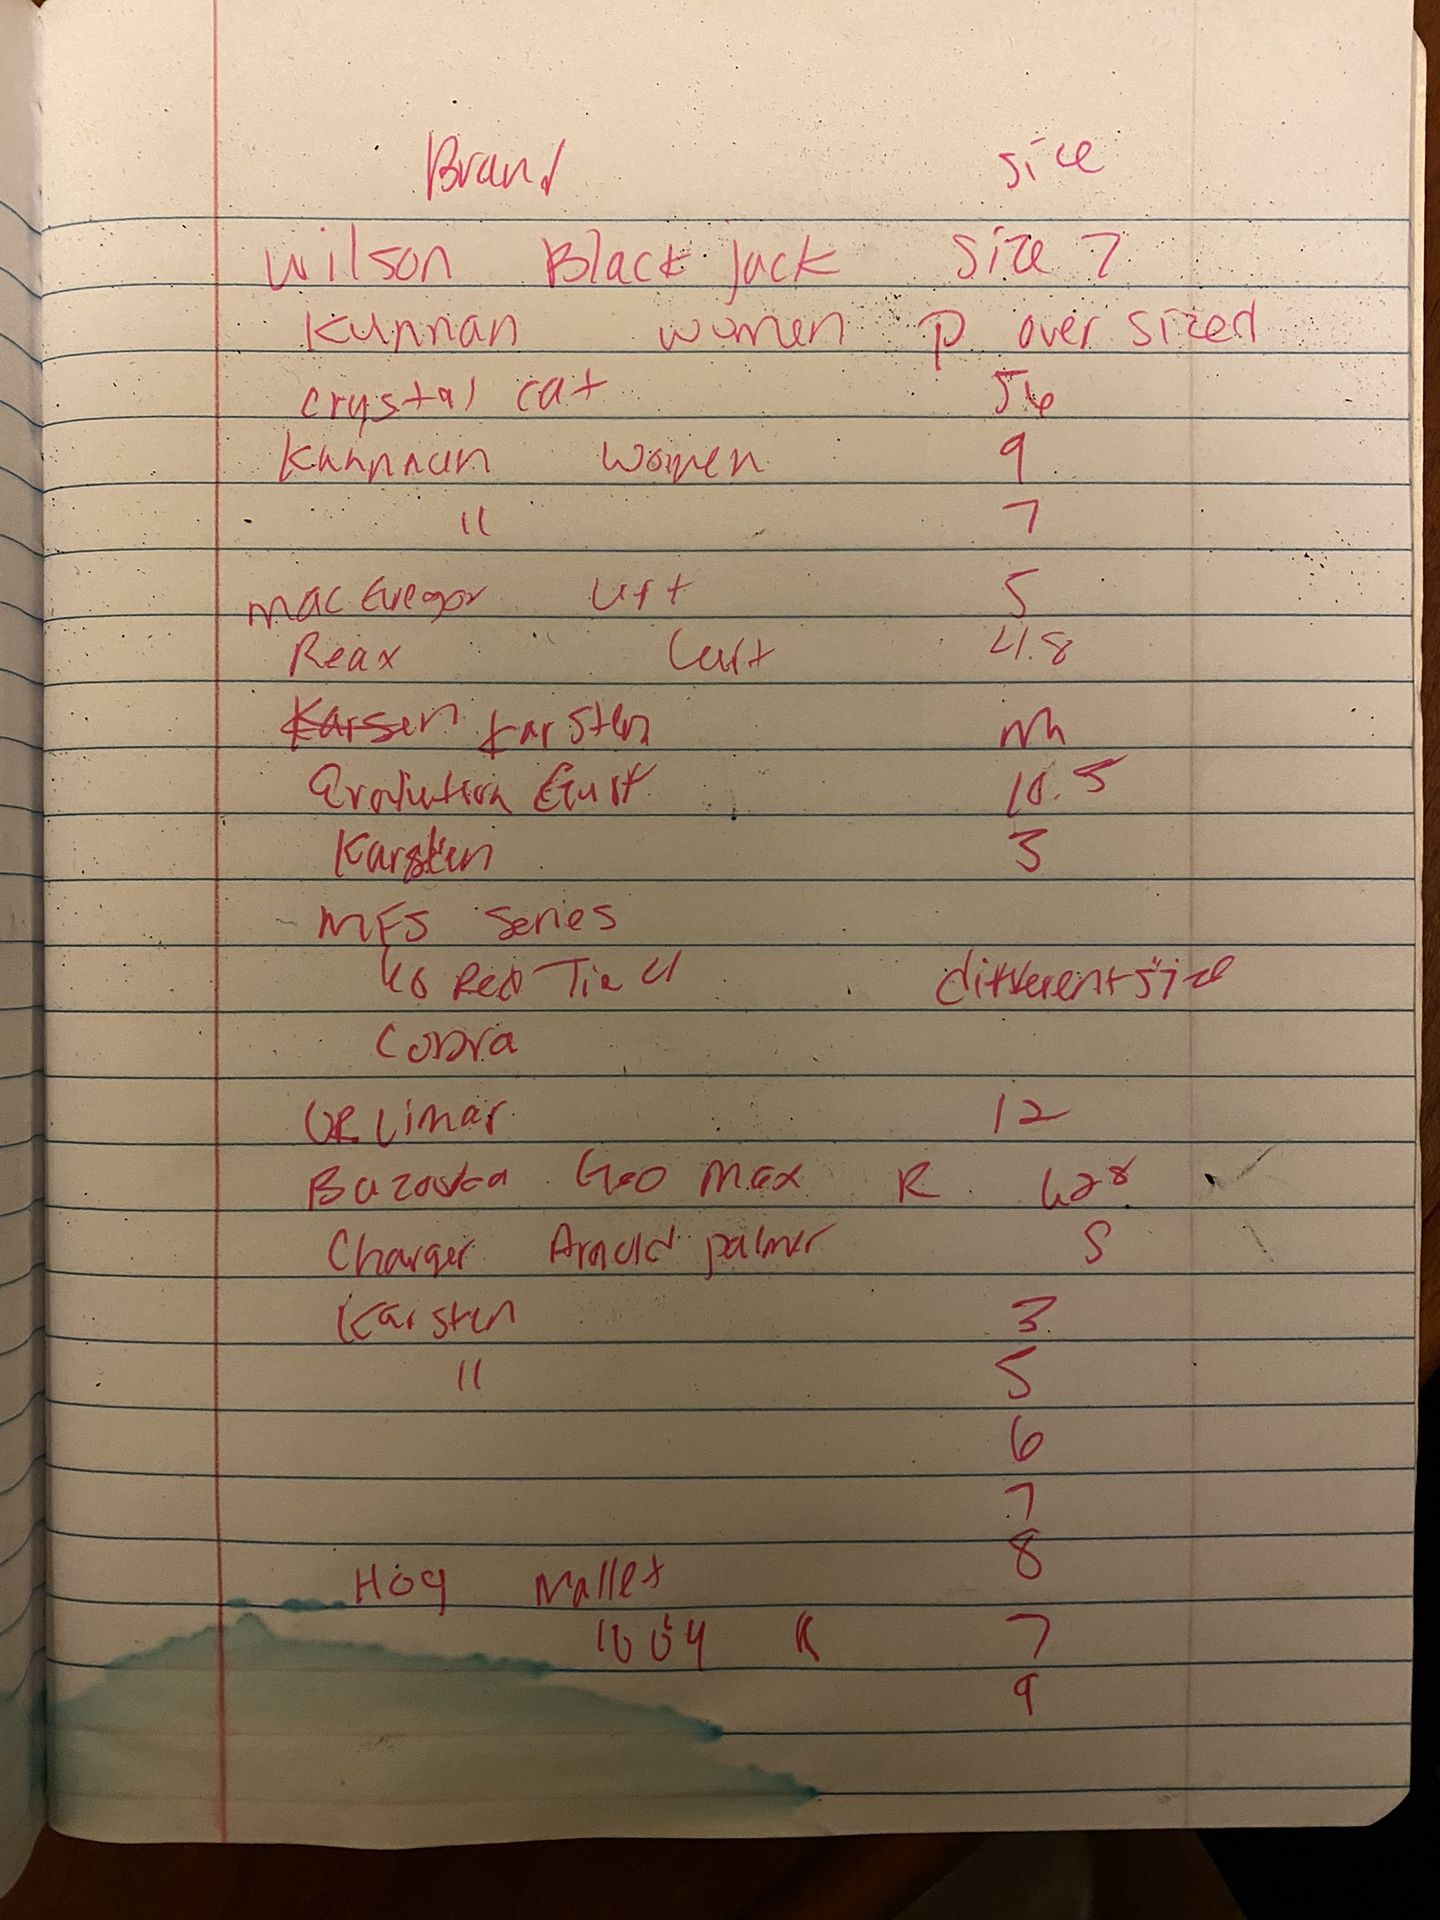 Brand size
Wilson Black Jack Size 7
Kunnan women P over sized
crystal cat 56
Kunnan Women 9
" 7
MacGregor Left 5
Reax Left 4.8
Karsen Karsten
Evolution Gust 10.5
Karsten 3
MFS Series
Red Tie different size
Cobra
ORLimar 12
Bazooka Geo Max R
Charger Arnold palmer S
Karsten 3
" 5
6
7
8
Hog Mallet
R 7
9